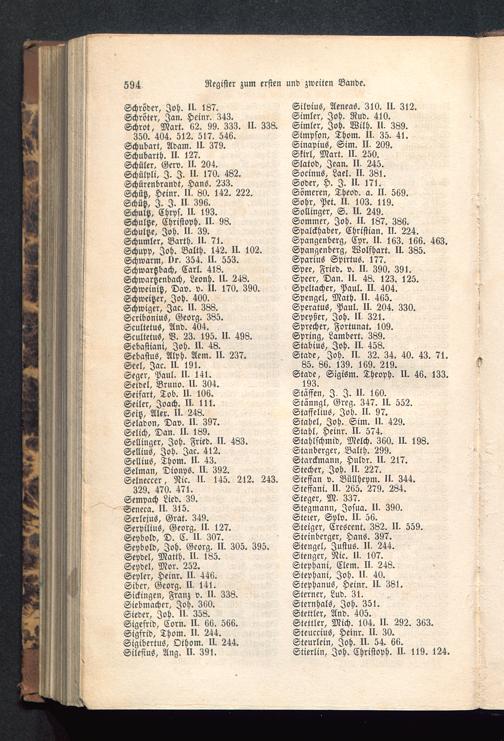 594
Register zum ersten und zweiten Bande.
Schröder, Joh. II. 187.
Schröter, Jan. Heinr. 343.
Schrot, Mart. 62. 99. 333. II. 338.
350. 404. 512. 517. 546.
Schubart, Adam. II. 379.
Schubarth. II. 127.
Schüler, Gerv. II. 204.
Schülpli, J. J. II. 170. 482.
Schürenbrandt, Hans. 233.
Schütz, Heinr. II. 80. 142. 222.
Schütz, J. J. II. 396.
Schultz, Chryf. II. 193.
Schultze, Christoph. II. 98.
Schultze, Joh. II. 39.
Schumler, Barth. II. 71.
Schupp, Joh. Balth. 142. II. 102.
Schwarm, Dr. 354. II. 553.
Schwartzbach, Carl. 418.
Schwartzenbach, Leonh. II. 248.
Schweinitz, Dav. v. II. 170. 390.
Schweitzer, Joh. 400.
Schwiger, Jac. II. 388.
Scribonius, Georg. 385.
Scultetus, And. 404.
Scultetus, B. 23. 195. II. 498.
Sebastiani, Joh. II. 48.
Sebastus, Alph. Aem. II. 237.
Seel, Jac. II. 191.
Seger, Paul. II. 141.
Seidel, Bruno. II. 304.
Seifart, Tob. II. 106.
Seiler, Joach. II. 111.
Seitz, Alex. II. 248.
Seladon, Dav. II. 397.
Selich, Dan. II. 189.
Sellinger, Joh. Fried. II. 483.
Sellius, Joh. Jac. 412.
Sellius, Thom. II. 43.
Selman, Dionys. II. 392.
Selneccer, Nic. II. 145. 212. 243.
329. 470. 471.
Sempach Lied. 39.
Seneca. II. 315.
Serlejus, Grat. 349.
Servilius, Georg. II. 127.
Seybold, D. C. II. 307.
Seybold, Joh. Georg. II. 305. 395.
Seydel, Matth. II. 185.
Seydel, Mor. 252.
Seyler, Heinr. II. 446.
Siber, Georg. II. 141.
Sickingen, Franz v. II. 338.
Siebmacher, Joh. 360.
Sieder, Joh. II. 358.
Sigefrid, Corn. II. 66. 566.
Sigfrid, Thom. II. 244.
Sigibertus, Othom. II. 244.
Silesius, Ang. II. 391.
Silvius, Aeneas. 310. II. 312.
Simler, Joh. Rud. 410.
Simler, Joh. Wilh. II. 389.
Simpson, Thom. II. 35. 41.
Sinapius, Sim. II. 209.
Skirl, Mart. II. 250.
Slatod, Jean. II. 245.
Socinus, Lael. II. 381.
Soder, H. J. II. 171.
Sömeren, Theod. a. II. 569.
Sohr, Pet. II. 103. 119.
Sollinger, S. II. 249.
Sommer, Joh. II. 187. 386.
Spalchaber, Christian. II. 224.
Spangenberg, Cyr. II. 163. 166. 463.
Spangenberg, Wolfhart. II. 385.
Sparius Spiritus. 177.
Spee, Fried. v. II. 390. 391.
Speer, Dan. II. 48. 123. 125.
Speltacher, Paul. II. 404.
Spengel, Math. II. 465.
Speratus, Paul. II. 204. 330.
Speyser, Joh. II. 321.
Sprecher, Fortunat. 109.
Spring, Lambert. 389.
Stabius, Joh. II. 458.
Stade, Joh. II. 32. 34. 40. 43. 71.
85. 86. 139. 169. 219.
Stade, Sigism. Theoph. II. 46. 133.
193.
Stäffen, J. J. II. 160.
Stänngl, Greg. 347. II. 552.
Staffelius, Joh. II. 97.
Stahel, Joh. Sim. II. 429.
Stahl, Heinr. II. 574.
Stahlschmid, Melch. 360. II. 198.
Stanberger, Balth. 299.
Starckmann, Huldr. II. 217.
Stecher, Joh. II. 227.
Steffan v. Büllheym. II. 344.
Steffani. II. 265. 279. 284.
Steger, M. 337.
Stegmann, Josua. II. 390.
Steier, Sylv. II. 56.
Steiger, Crescent. 382. II. 559.
Steinberger, Hans. 397.
Stengel, Justus. II. 244.
Stenger, Nic. II. 107.
Stephani, Clem. II. 248.
Stephani, Joh. II. 40.
Stephanus, Heinr. II. 381.
Sterner, Lud. 31.
Sternhals, Joh. 351.
Stettler, And. 405.
Stettler, Mich. 104. II. 292. 363.
Steuccius, Heinr. II. 30.
Steurlein, Joh. II. 54. 66.
Stierlin, Joh. Christoph. II. 119. 124.